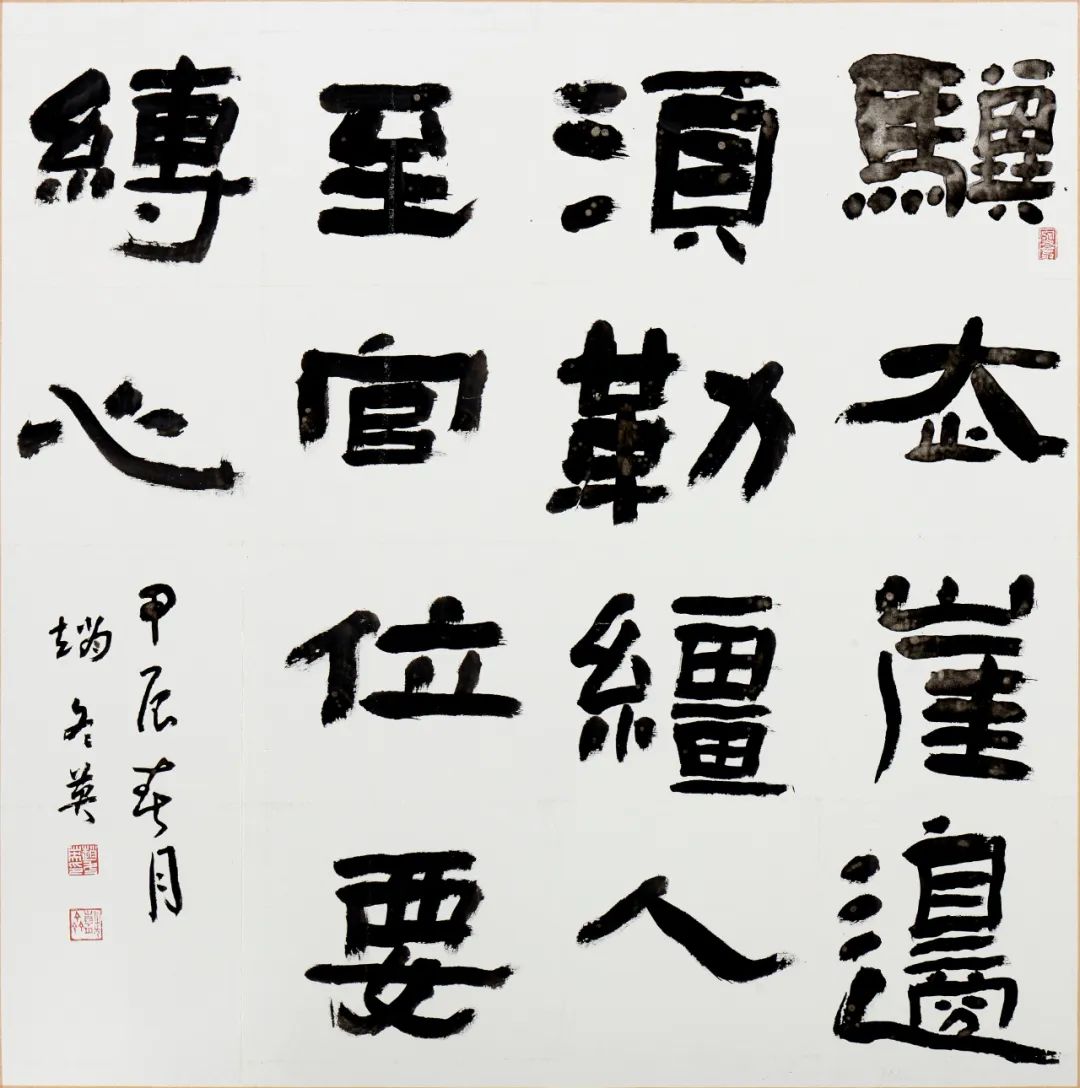 驥走崖邊
須勒繮人
至官位要
縛心
甲辰春月
趙冬英